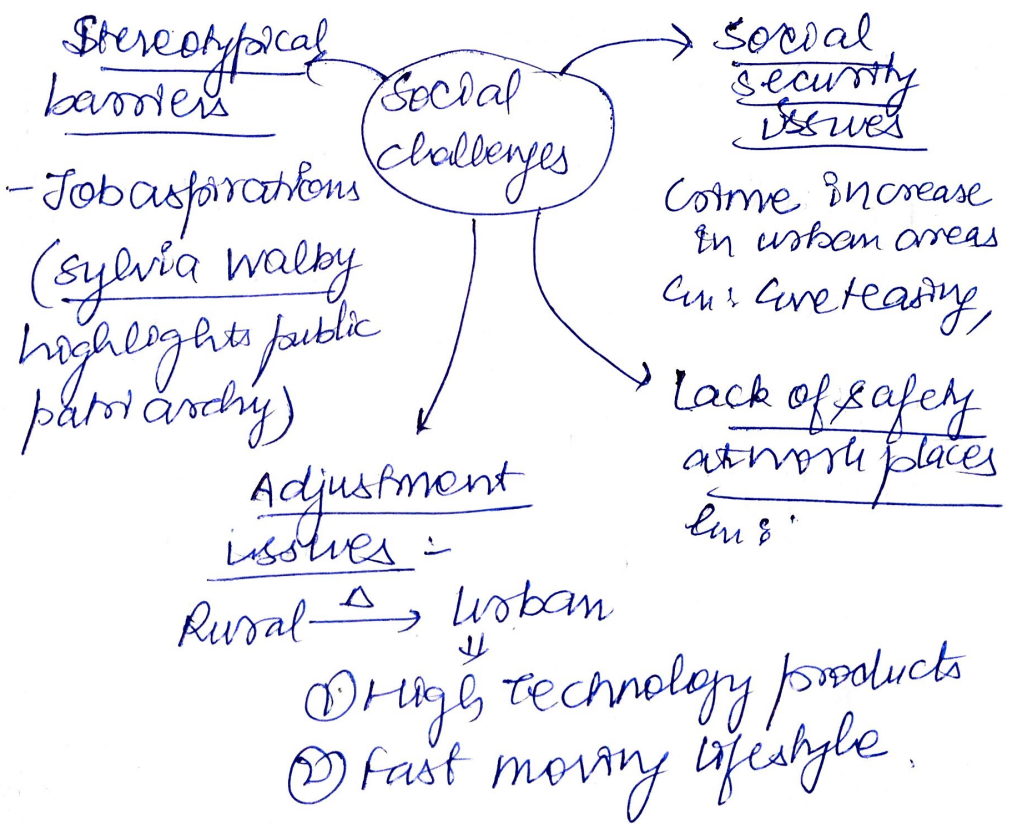 Social
challenges
Stereotypical
barriers
- Job aspirations
(Sylvia Walby
highlights public
patriarchy)
Social
security
issues
Crime increase
in urban areas
teasing,
Lack of safety
at work places
Adjustment
issues :-
Rural Δ→ Urban
⇓
① High technology products
② Fast moving lifestyle.